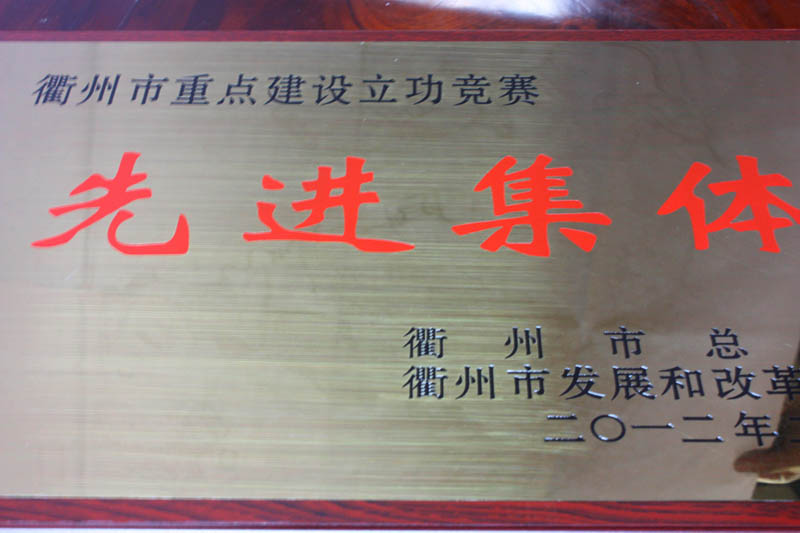 衢州市重点建设立功竞赛
先进集体
衢州市总
衢州市发展和改革
二〇一二年